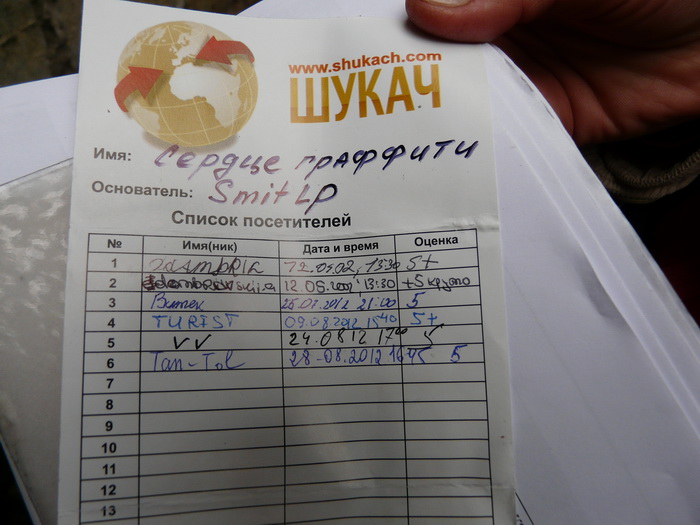 www.shukach.com
ШУКАЧ
Имя: Сердце граффити
Основатель: SmitLP
Список посетителей
№ Имя(ник) Дата и время Оценка
1 13:30 5+
2 12.05. 13:30 +5
3 Витек 21:00 5
4 TURIST 09.08 2012 15 40 5+
5 VV 24.08 12 17 00 5
6 Tan-Tol 28-08.2012 16 45 5
7
8
9
10
11
12
13